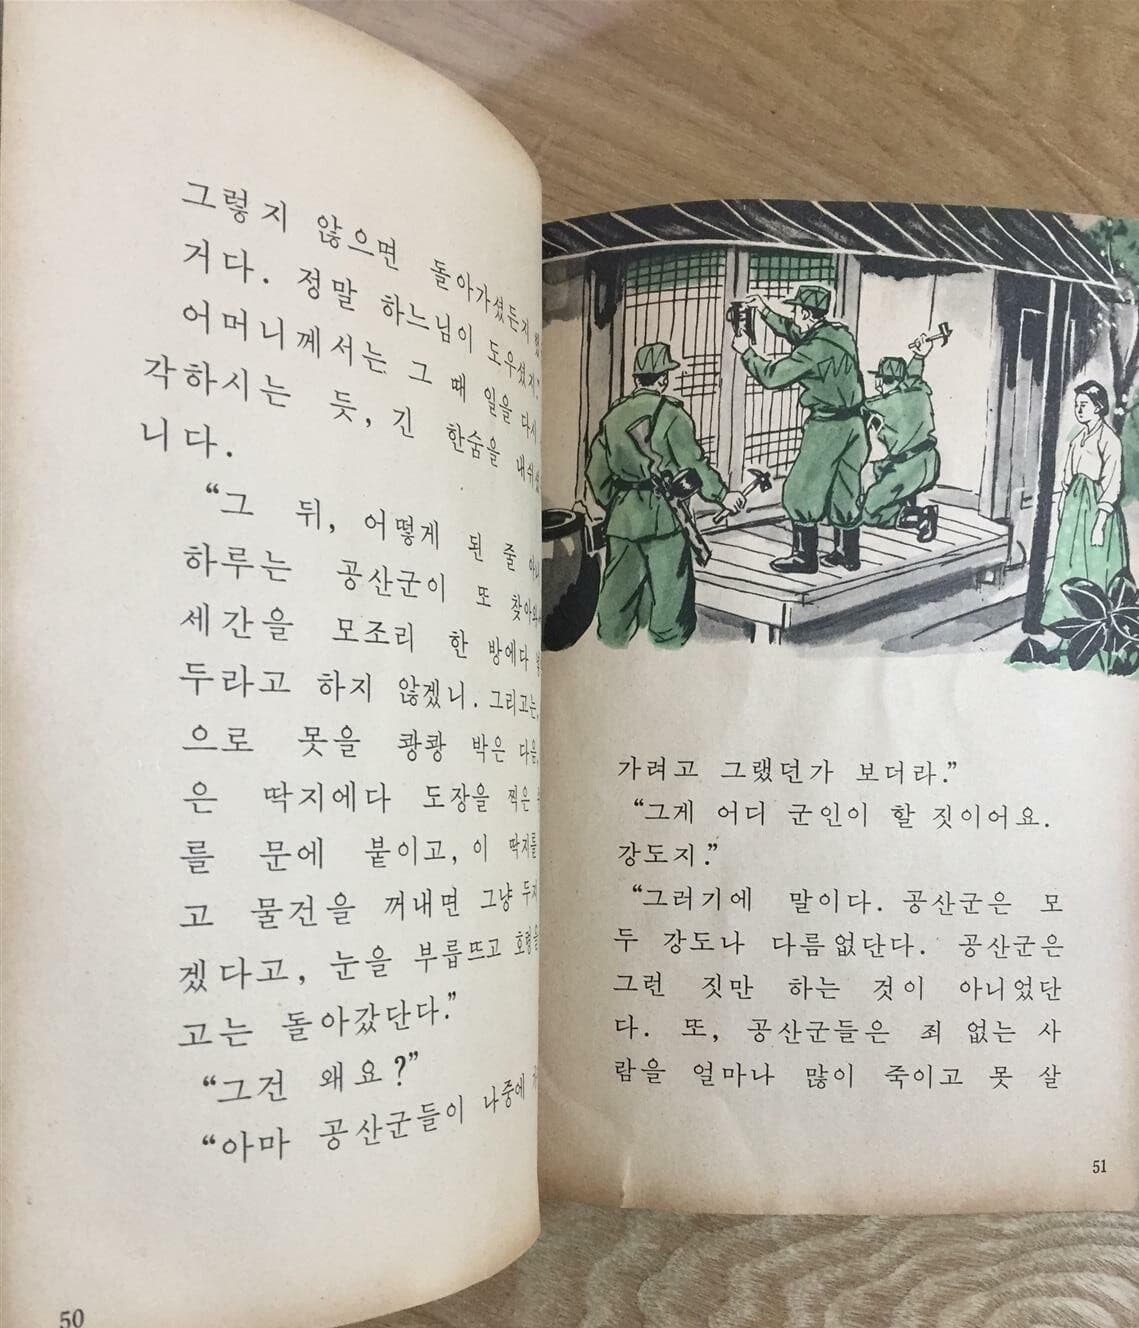 그렇지 않으면 돌아가셨든지
거다. 정말 하느님이 도우셨지.”
어머니께서는 그 때 일을 다시
각하시는 듯, 긴 한숨을 내쉬셨
니다.
“그 뒤, 어떻게 된 줄 아니
하루는 공산군이 또 찾아와서
세간을 모조리 한 방에다
두라고 하지 않겠니. 그리고는,
으로 못을 쾅쾅 박은 다음,
은 딱지에다 도장을 찍은
를 문에 붙이고, 이 딱지를
고 물건을 꺼내면 그냥 두지
겠다고, 눈을 부릅뜨고 호령을
고는 돌아갔단다.”
“그건 왜요?”
“아마 공산군들이 나중에
50
가려고 그랬던가 보더라.”
“그게 어디 군인이 할 짓이어요.
강도지.”
“그러기에 말이다. 공산군은 모
두 강도나 다름없단다. 공산군은
그런 짓만 하는 것이 아니었단
다. 또, 공산군들은 죄 없는 사
람을 얼마나 많이 죽이고 못 살
51